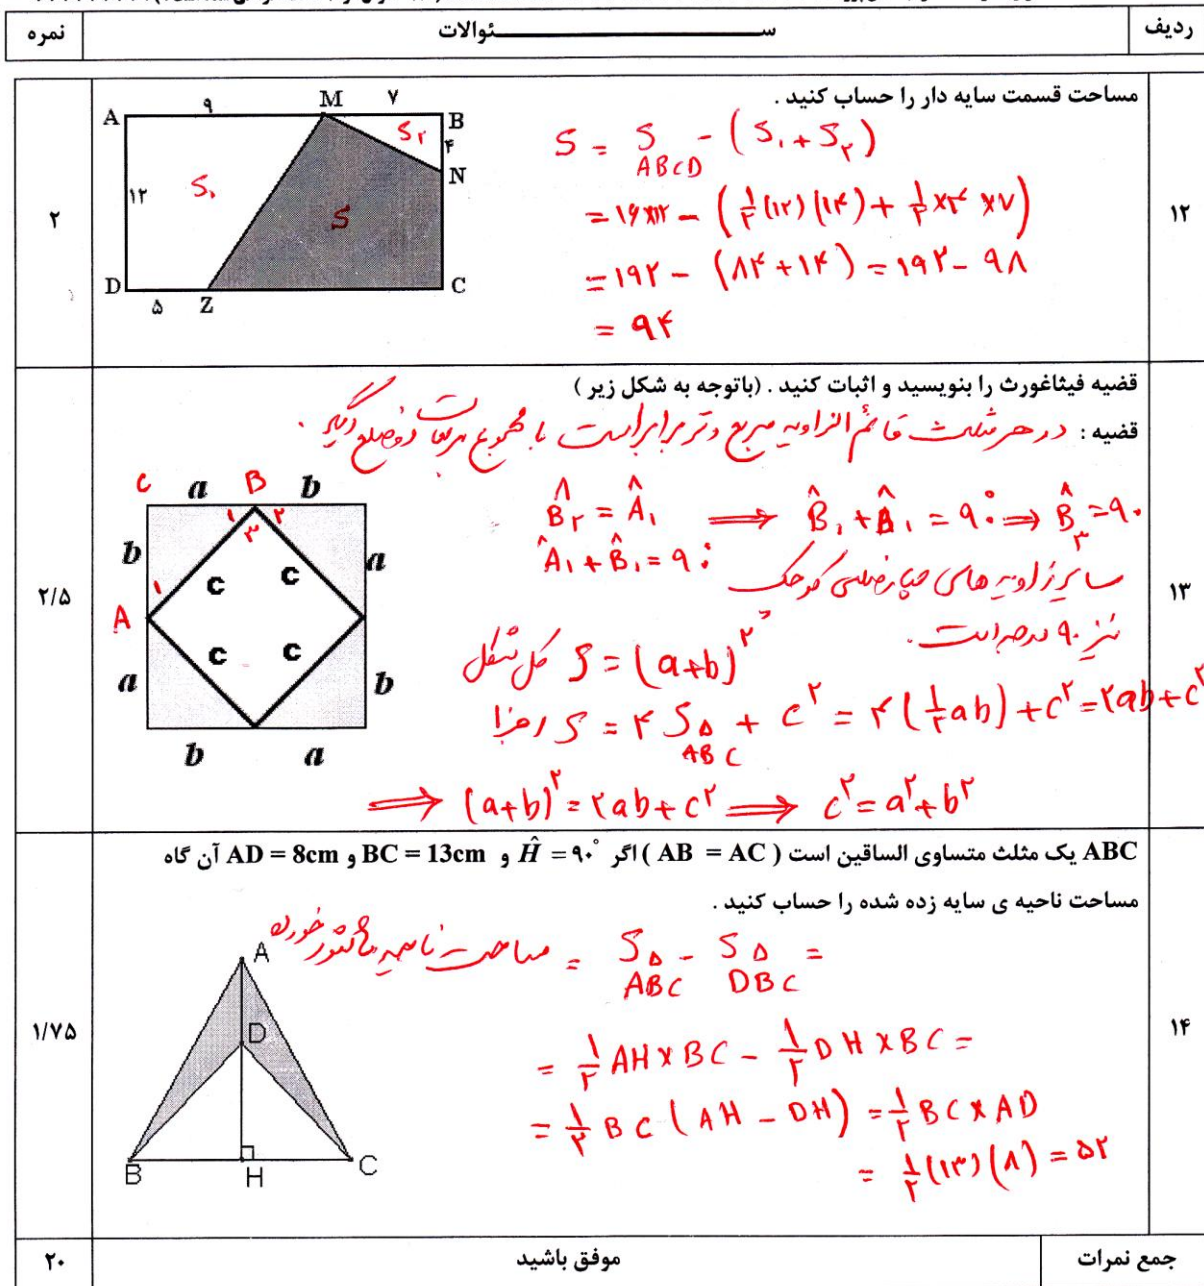 ردیف ســـــــــئوالات نمره
۱۲
مساحت قسمت سایه دار را حساب کنید .
۲
A ۹ M ۷ B
S۲ ۴
N
۱۲ S۱
S
D ۵ Z C
S = S ABCD - (S۱ + S۲)
= ۱۶×۱۲ - (۱/۲ (۱۲)(۱۴) + ۱/۲ ×۴ ×۷)
= ۱۹۲ - (۸۴ + ۱۴) = ۱۹۲ - ۹۸
= ۹۴
۱۳
قضیه فیثاغورث را بنویسید و اثبات کنید . (باتوجه به شکل زیر )
قضیه : در هر مثلث قائم الزاویه مربع وتر برابر است با مجموع مربعات دو ضلع دیگر .
۲/۵
C a B b
۱ ۲
۳
b c c a
۱
A
a c c b
b a
B̂۲ = Â۱ ⟹ B̂۱ + B̂۱ = ۹۰° ⟹ B̂۳ = ۹۰
Â۱ + B̂۱ = ۹۰°
سایر زاویه های چهارضلعی کوچک
نیز ۹۰ درجه است .
کل شکل S = (a+b)²
S = ۴ S△ ABC + c² = ۴(۱/۲ ab) + c² = ۲ab + c²
⟹ (a+b)² = ۲ab + c² ⟹ c² = a² + b²
۱۴
ABC یک مثلث متساوی الساقین است ( AB = AC ) اگر Ĥ = ۹۰° و BC = 13cm و AD = 8cm آن گاه
مساحت ناحیه ی سایه زده شده را حساب کنید .
۱/۷۵
A
D
B H C
مساحت ناحیه هاشور خورده = S△ ABC - S△ DBC =
= ۱/۲ AH × BC - ۱/۲ DH × BC =
= ۱/۲ BC (AH - DH) = ۱/۲ BC × AD
= ۱/۲ (۱۳)(۸) = ۵۲
جمع نمرات موفق باشید ۲۰